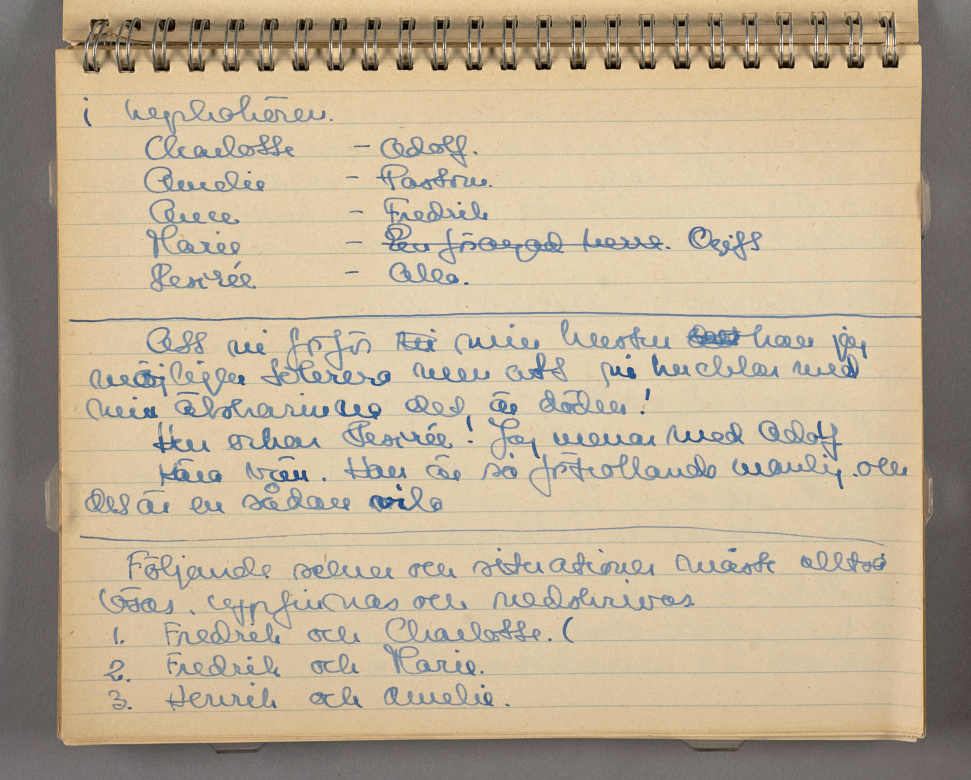 i uppkokaren.
Charlotte – Adolf.
Amelie – Pastorn.
Anne – Fredrik
Marie – Den försagad herre. Ogift
Desirée – Alla.
Att ni förför min hustru kan jag
möjligen tolerera men att ni kucklar med
min älskarinna det är döden!
Hur orkar Desirée! Jag menar med Adolf
Kära vän. Han är så förtrollande manlig och
det är en sådan vila
Följande scener och situationer måste alltså
lösas. uppfinnas och nedskrivas
1. Fredrik och Charlotte. (
2. Fredrik och Marie.
3. Henrik och Amelie.